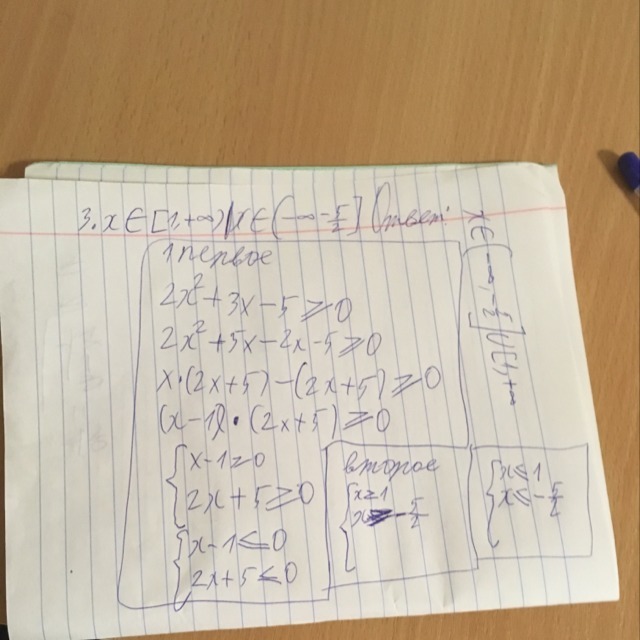 3. x ∈ [1,+∞) x ∈ (-∞ -5/2] Ответ:
x ∈ (-∞, -5/2] ∪ [1, +∞
1 первое
2x² + 3x - 5 ≥ 0
2x² + 5x - 2x - 5 ≥ 0
x·(2x+5) - (2x+5) ≥ 0
(x-1)·(2x+5) ≥ 0
{ x-1 ≥ 0
2x+5 ≥ 0
{ x-1 ≤ 0
2x+5 ≤ 0
второе
{ x ≥ 1
x -5/2
{ x ≤ 1
x ≤ -5/2